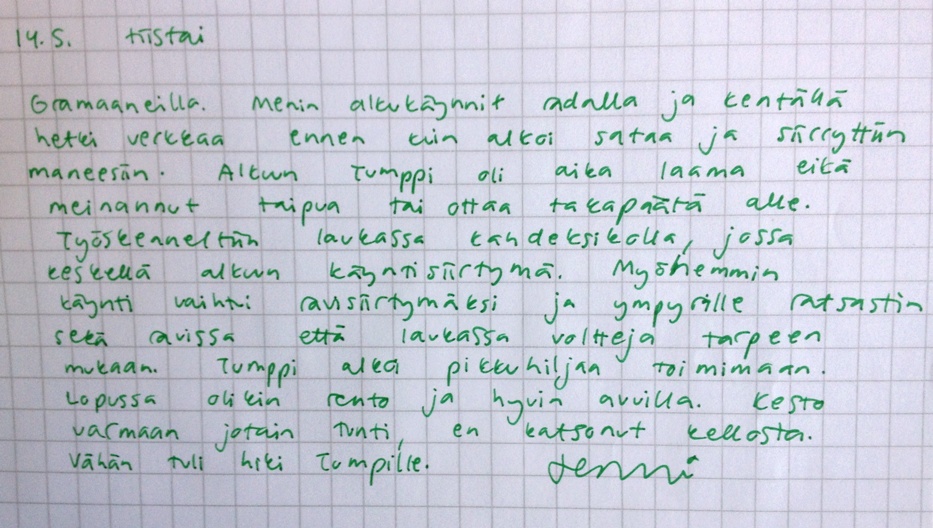 14.5. tiistai
Gramaaneilla. Menin alkukäynnit radalla ja kentällä
hetki verkkaa ennen kuin alkoi sataa ja siirryttiin
maneesiin. Alkuun Tumppi oli aika laama eikä
meinannut taipua tai ottaa takapäätä alle.
Työskenneltiin laukassa kahdeksikolla, jossa
keskellä alkuun käyntisiirtymä. Myöhemmin
käynti vaihtui ravisiirtymäksi ja ympyrille ratsastin
sekä ravissa että laukassa voltteja tarpeen
mukaan. Tumppi alkoi pikkuhiljaa toimimaan.
Lopussa olikin rento ja hyvin avuilla. Kesto
varmaan jotain tunti, en katsonut kellosta.
Vähän tuli hiki Tumpille. Jenni